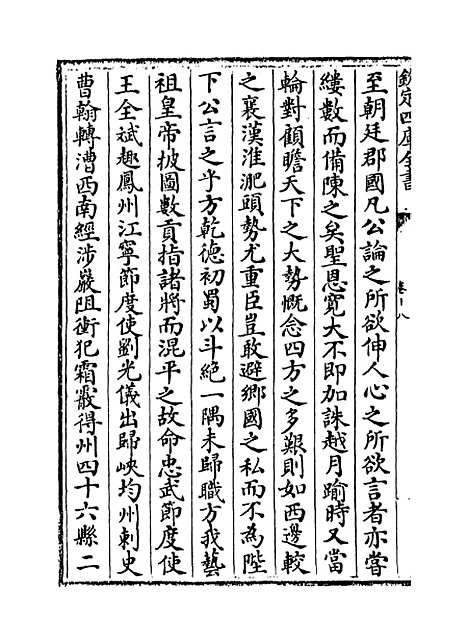 欽定四庫全書
卷十八
至朝廷郡國凡公論之所欲伸人心之所欲言者亦嘗
縷數而備陳之矣聖恩寛大不即加誅越月踰時又當
輪對顧瞻天下之大勢慨念四方之多艱則如西邊較
之襄漢淮淝頭勢尤重臣豈敢避鄉國之私而不為陛
下公言之乎方乾德初蜀以斗絶一隅未歸職方我藝
祖皇帝披圖數貢指諸將而混平之故命忠武節度使
王全斌趣鳳州江寧節度使劉光儀出歸峽均州刺史
曹翰轉漕西南經涉巖阻衝犯霜骰得州四十六縣二